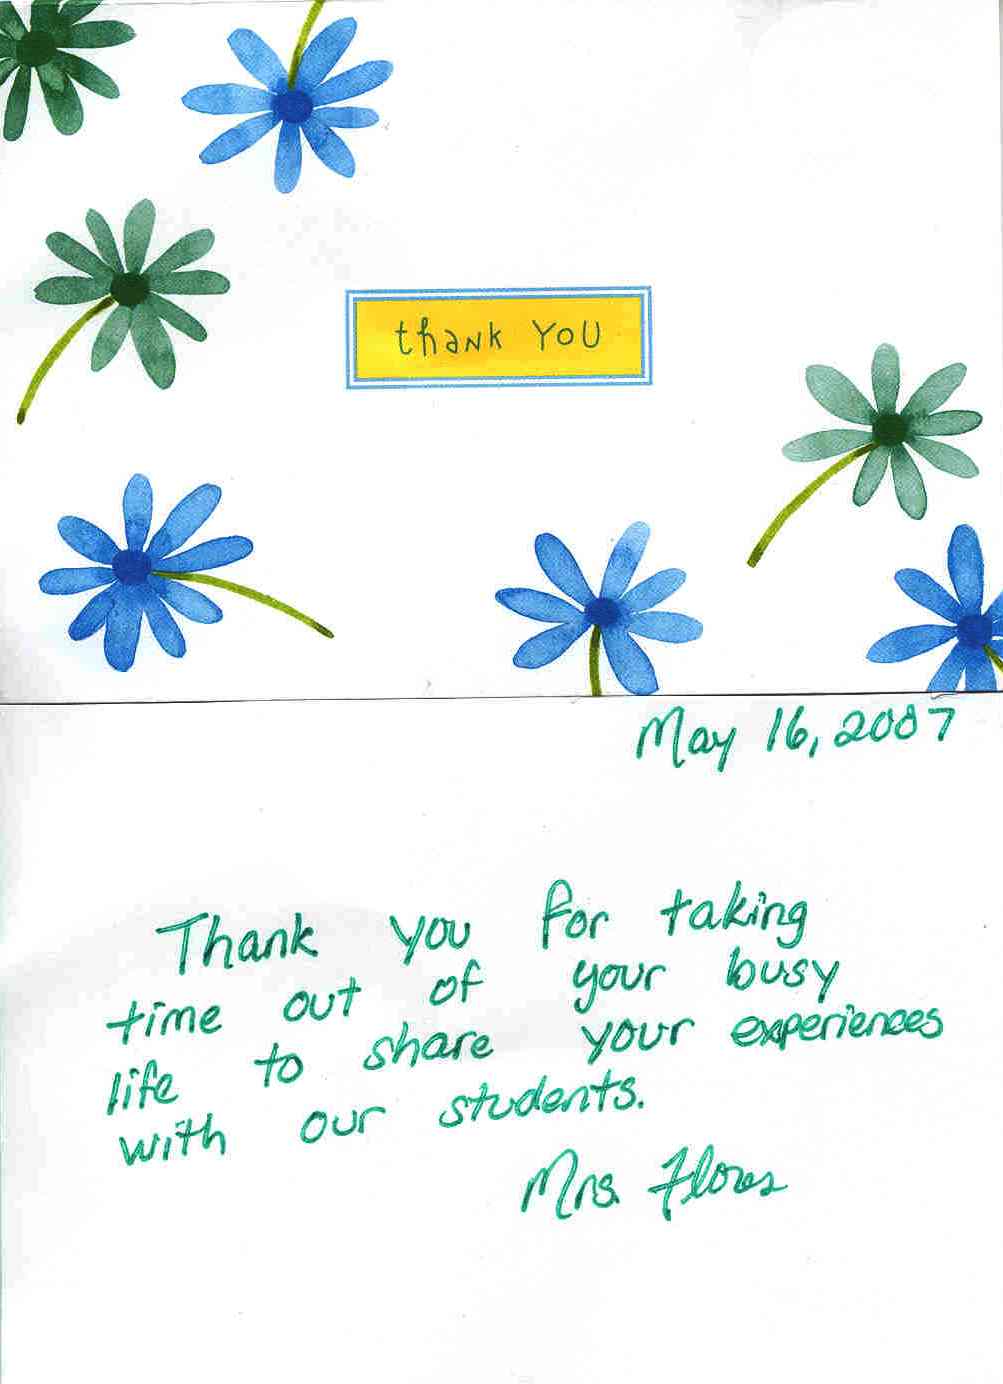 thank you
May 16, 2007
Thank you for taking
time out of your busy
life to share your experiences
with our students.
Mrs. Flores